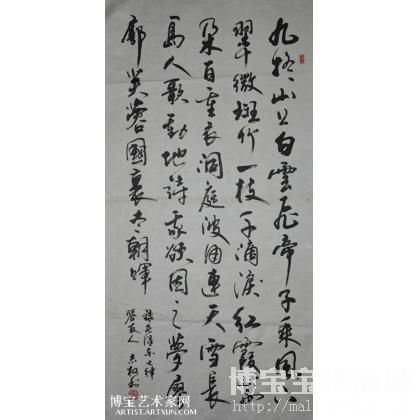 九嶷山上白雲飛帝子乘風下
翠微斑竹一枝千滴淚紅霞萬
朵百重衣洞庭波涌連天雪長
島人歌動地詩我欲因之夢寥
廓芙蓉國裏盡朝暉
錄毛澤東七律
答友人
博宝 艺术家网
artist.artxun.com
博宝艺
http://